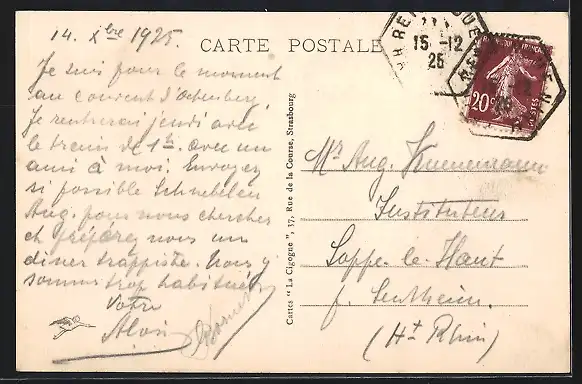 14. Xbre 1925.
CARTE POSTALE
15-12
25
20c
POSTES
Je suis pour le moment
au couvent d'Oelenberg.
Je rentrerai jeudi avec
le train de 1h. avec un
ami à moi. Envoyez
si possible Schnebelen
Aug. pour nous chercher
et préparez nous un
diner trappiste. Nous y
sommes trop habitués.
Votre
Alois
Mr. Aug.
Instituteur
Soppe-le-Haut
p. Sentheim.
(Ht Rhin)
Cartes " La Cigogne ", 37, Rue de la Course, Strasbourg